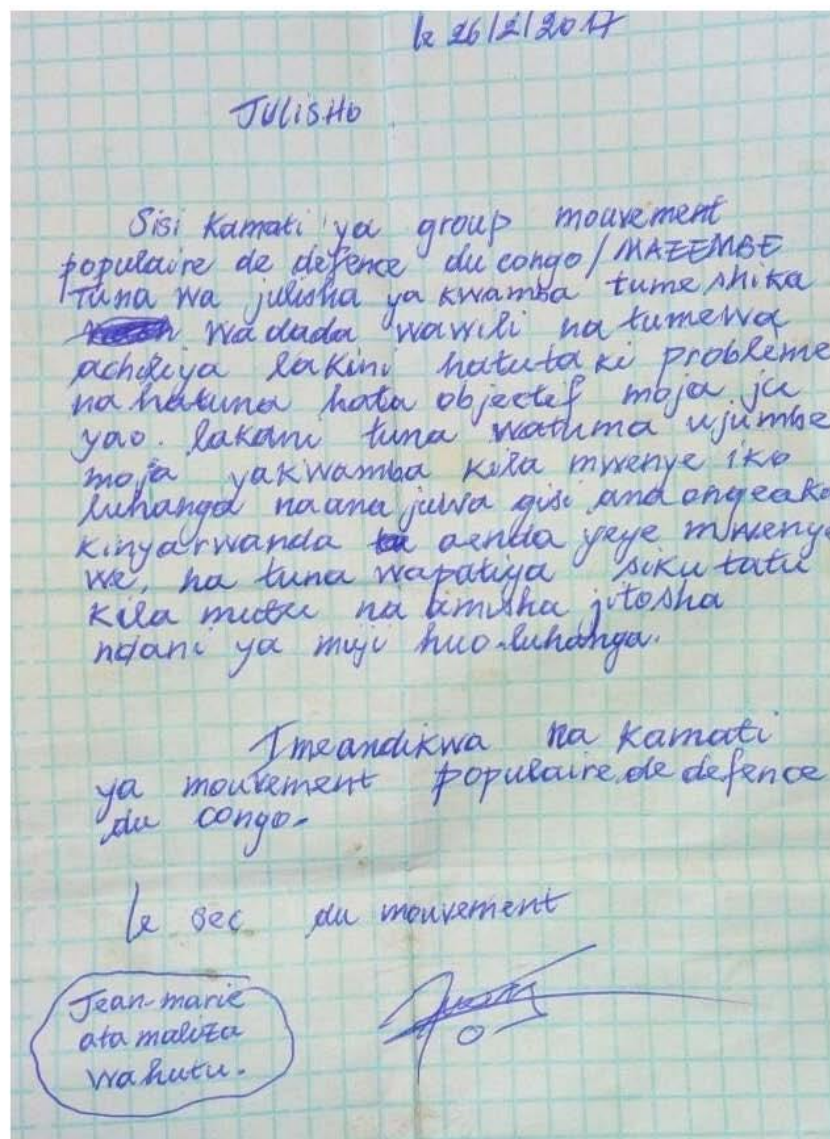 le 26/2/2017
JULISHO
Sisi Kamati ya group mouvement
populaire de defence du congo/MAZEMBE
Tuna wa julisha ya kwamba tumeshika
wadada wawili na tumewa
achiliya lakini hatutaki probleme
na hatuna hata objectif moja ju
yao. lakani tuna watuma ujumbe
moja yakwamba kila mwenye iko
luhanga naana juwa gisi ana ongeaka
kinyarwanda aenda yeye mwenye
we, na tuna wapatiya siku tatu
kila mutu na amisha jitosha
ndani ya muji huo luhanga.
Imeandikwa na Kamati
ya mouvement populaire de defence
du congo.
le sec du mouvement
Jean-marie
ata maliza
wahutu.